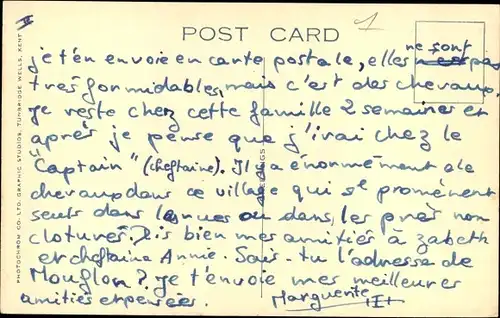 POST CARD
1
je t'en envoie en carte postale, elles ne sont pas
très formidables, mais c'est des chevaux.
je reste chez cette famille 2 semaines et
après je pense que j'irai chez le
"Captain" (cheftaine). Il y a énormément de
chevaux dans ce village qui se promènent
seuls dans les rues ou dans les prés non
cloturés. Dis bien mes amitiés à Zabeth
et cheftaine Annie. Sais-tu l'adresse de
Mouflon? je t'envoie mes meilleures
amitiés et pensées.
Marguerite
PHOTOCHROM CO. LTD. GRAPHIC STUDIOS, TUNBRIDGE WELLS, KENT